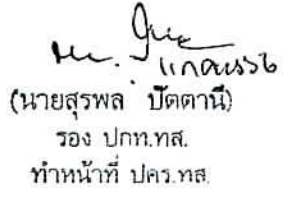 (นายสุรพล ปัตตานี)
รอง ปกท.ทส.
ทำหน้าที่ ปคร.ทส.